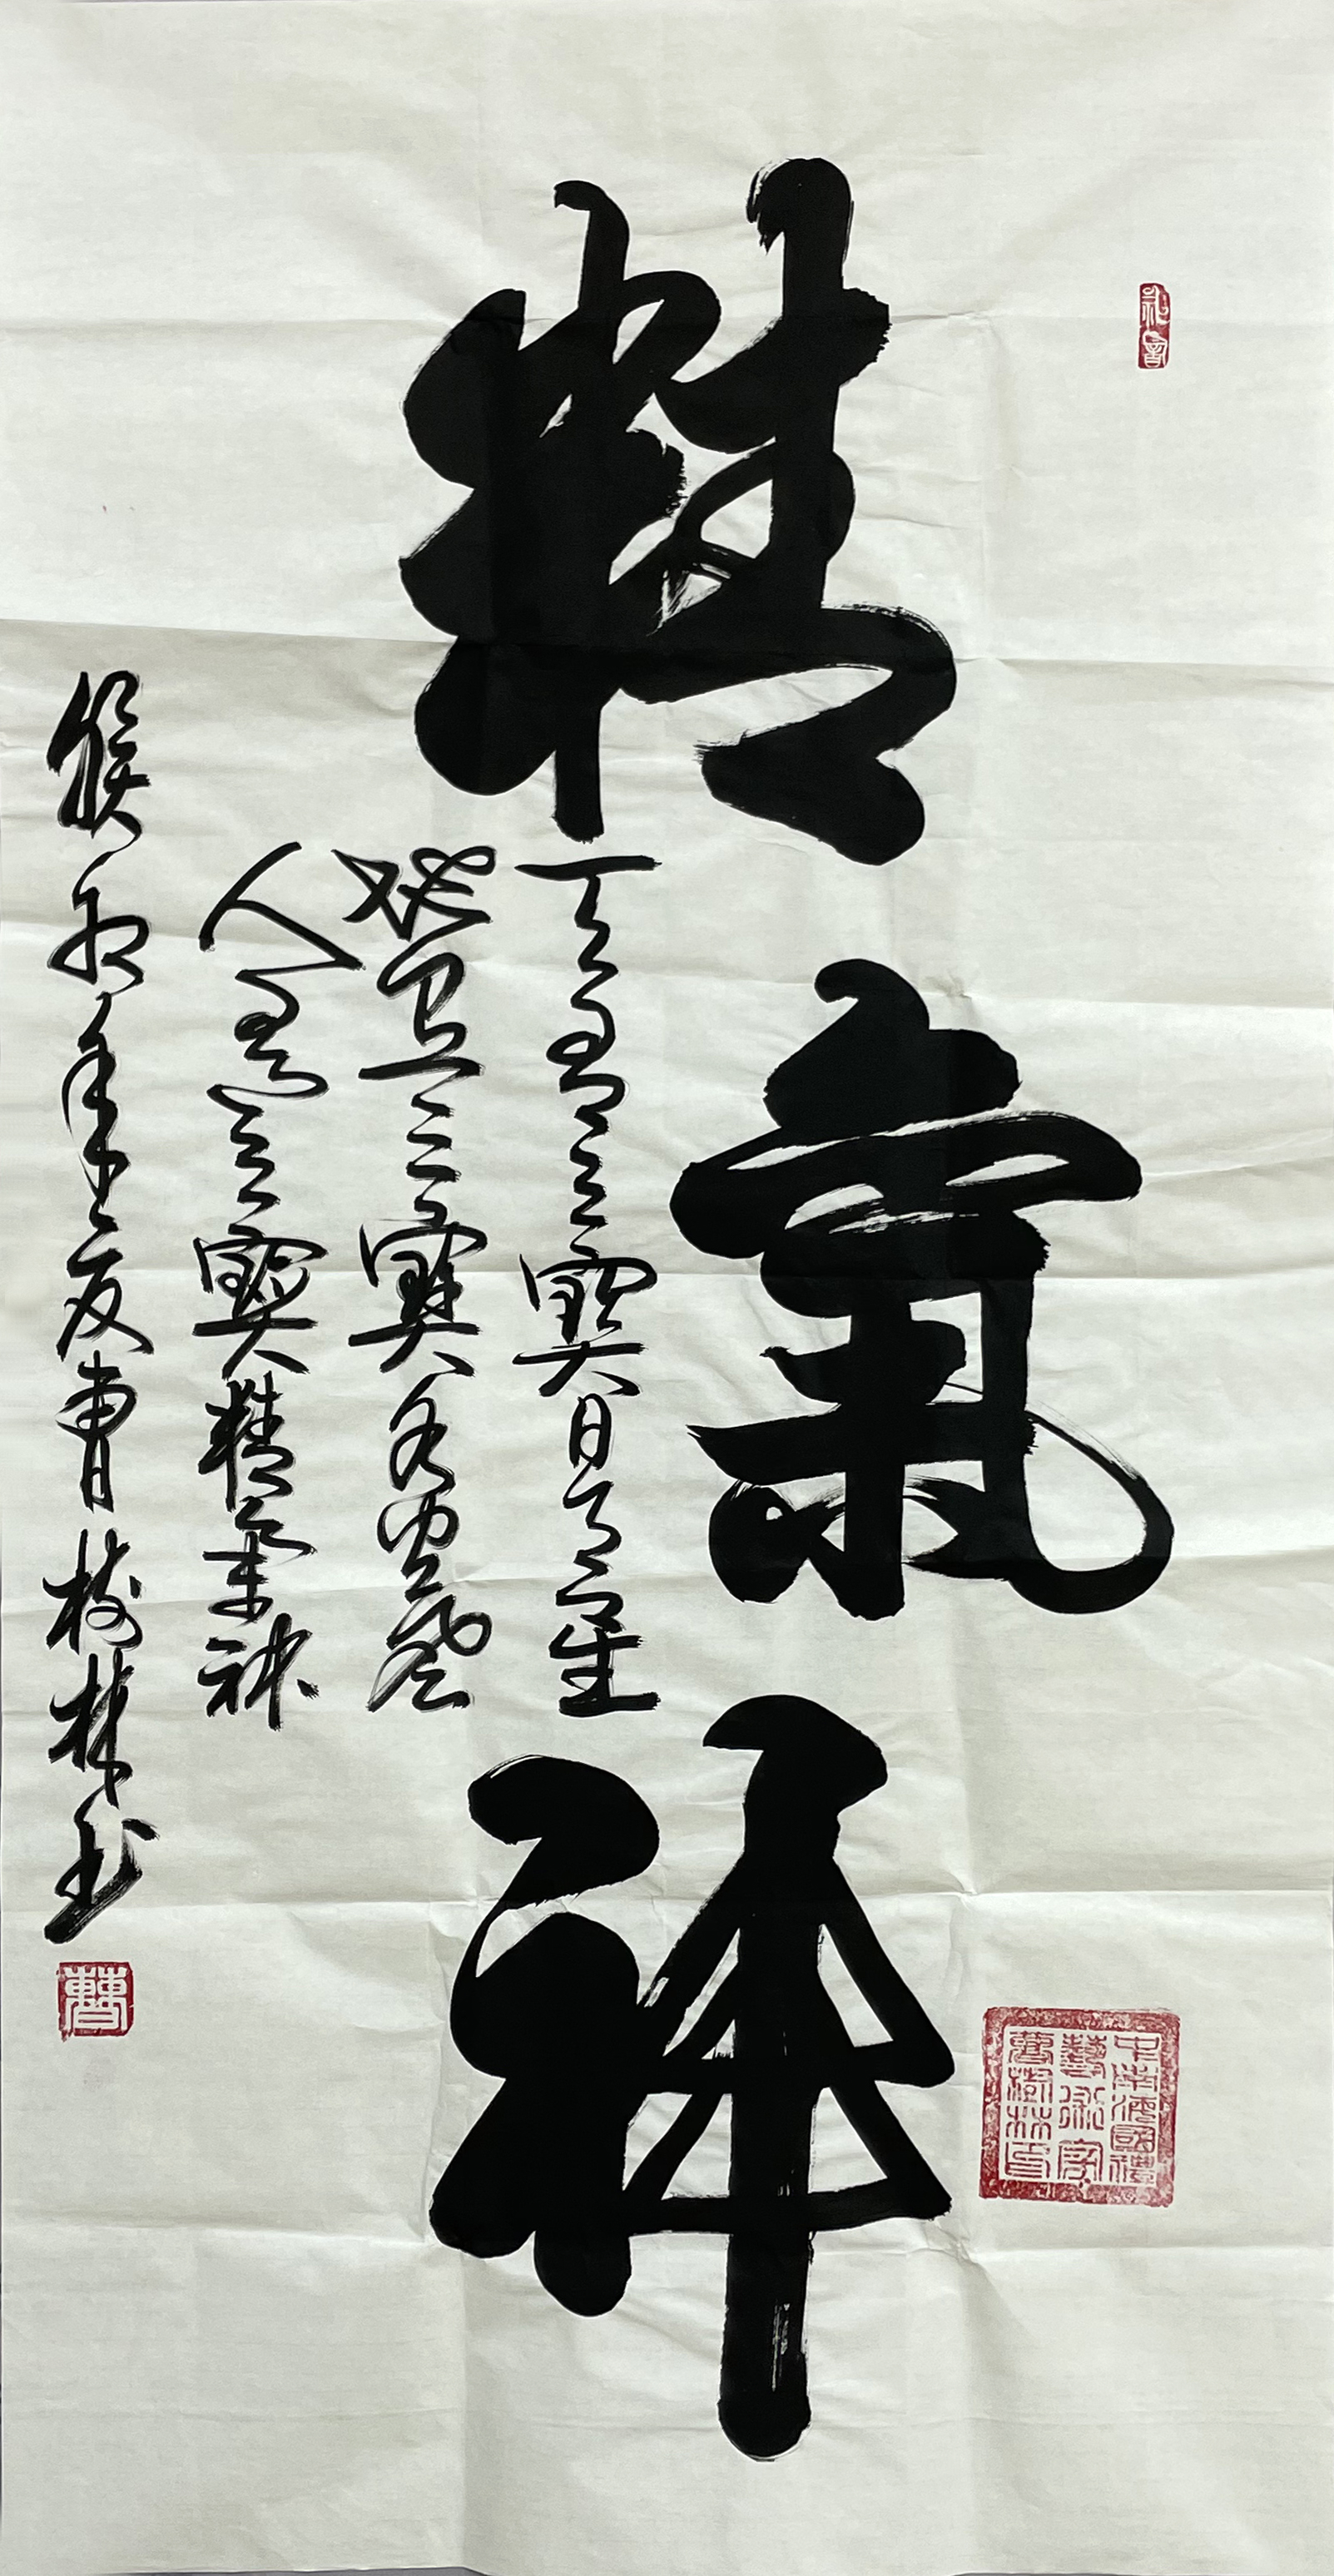 精氣神
天有三寶日月星
地三寶水風
人有三寶精氣神
癸卯年夏曹樹林书
曹
國禮
藝術家
曹樹林印